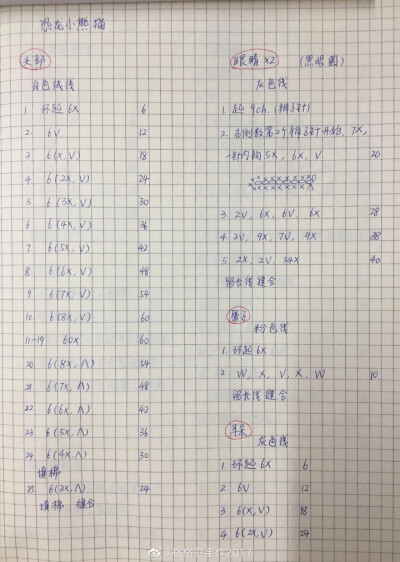 恐龙小熊猫
头部
白色线线
1. 环起 6X 6
2. 6V 12
3 6(X,V) 18
4 6(2X,V) 24
5 6(3X,V) 30
6 6(4X,V) 36
7 6(5X,V) 42
8 6(6X,V) 48
9 6(7X,V) 54
10. 6(8X,V) 60
11-19 60X 60
20 6(8X,Λ) 54
21 6(7X,Λ) 48
22 6(6X,Λ) 42
23 6(5X,Λ) 36
24. 6(4X,Λ) 30
填棉
25. 6(3X,Λ) 24
填棉 缝合
眼睛x2 (黑眼圈)
灰色线
1. 起9ch.(辫子针)
2. 在倒数第2个辫子针开始, 7X,
一针内钩5X, 6X, V 20
3 2V, 6X, 6V, 6X 28
4. 3V, 9X, 7V, 9X 38
5. 2X, 2V, 34X 40
留长线缝合
鼻子
粉色线
1. 环起6X
2. W, X, V, X, W 10
留长线缝合
耳朵
灰色线
1. 环起6X 6
2 6V 12
3 6(X,V) 18
4 6(2X,V) 24